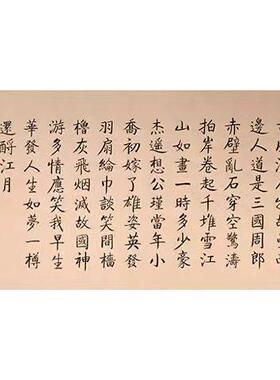 邊人道是三國周郎
赤壁亂石穿空驚濤
拍岸卷起千堆雪江
山如畫一時多少豪
杰遥想公瑾當年小
喬初嫁了雄姿英發
羽扇綸巾談笑間檣
櫓灰飛烟滅故國神
游多情應笑我早生
華發人生如夢一樽
還酹江月